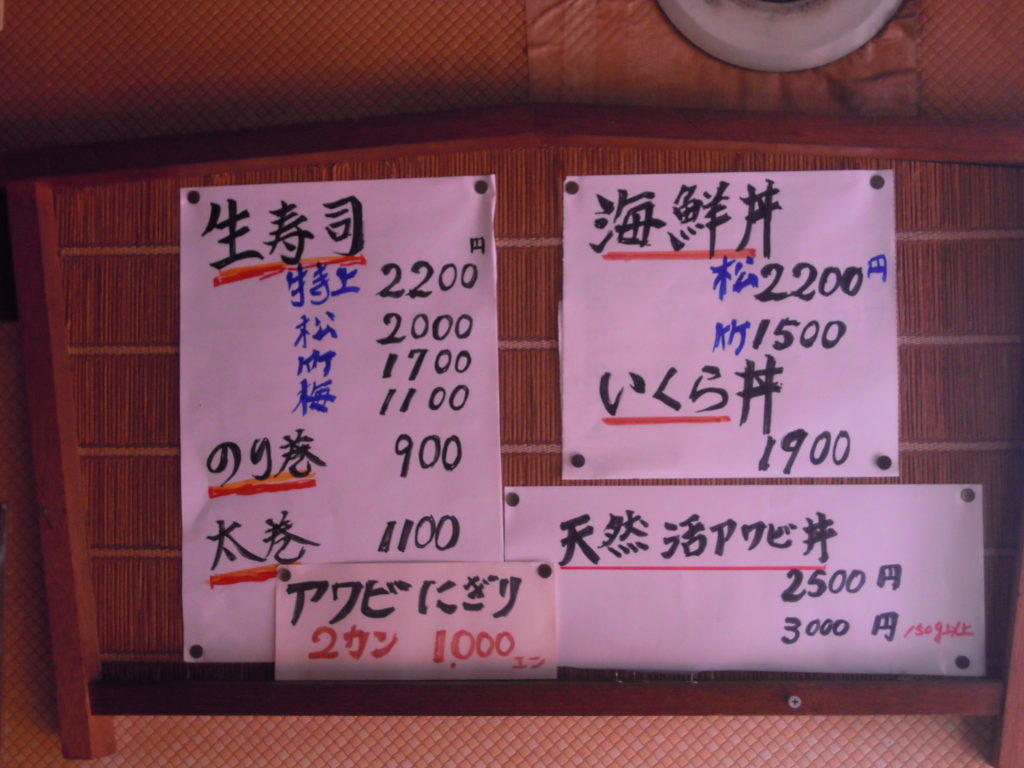 生寿司
円
特上 2200
松 2000
竹 1700
梅 1100
のり巻 900
太巻 1100
アワビにぎり
2カン 1,000エン
海鮮丼
松2200円
竹1500
いくら丼
1900
天然 活アワビ丼
2500円
3000円 150g以上